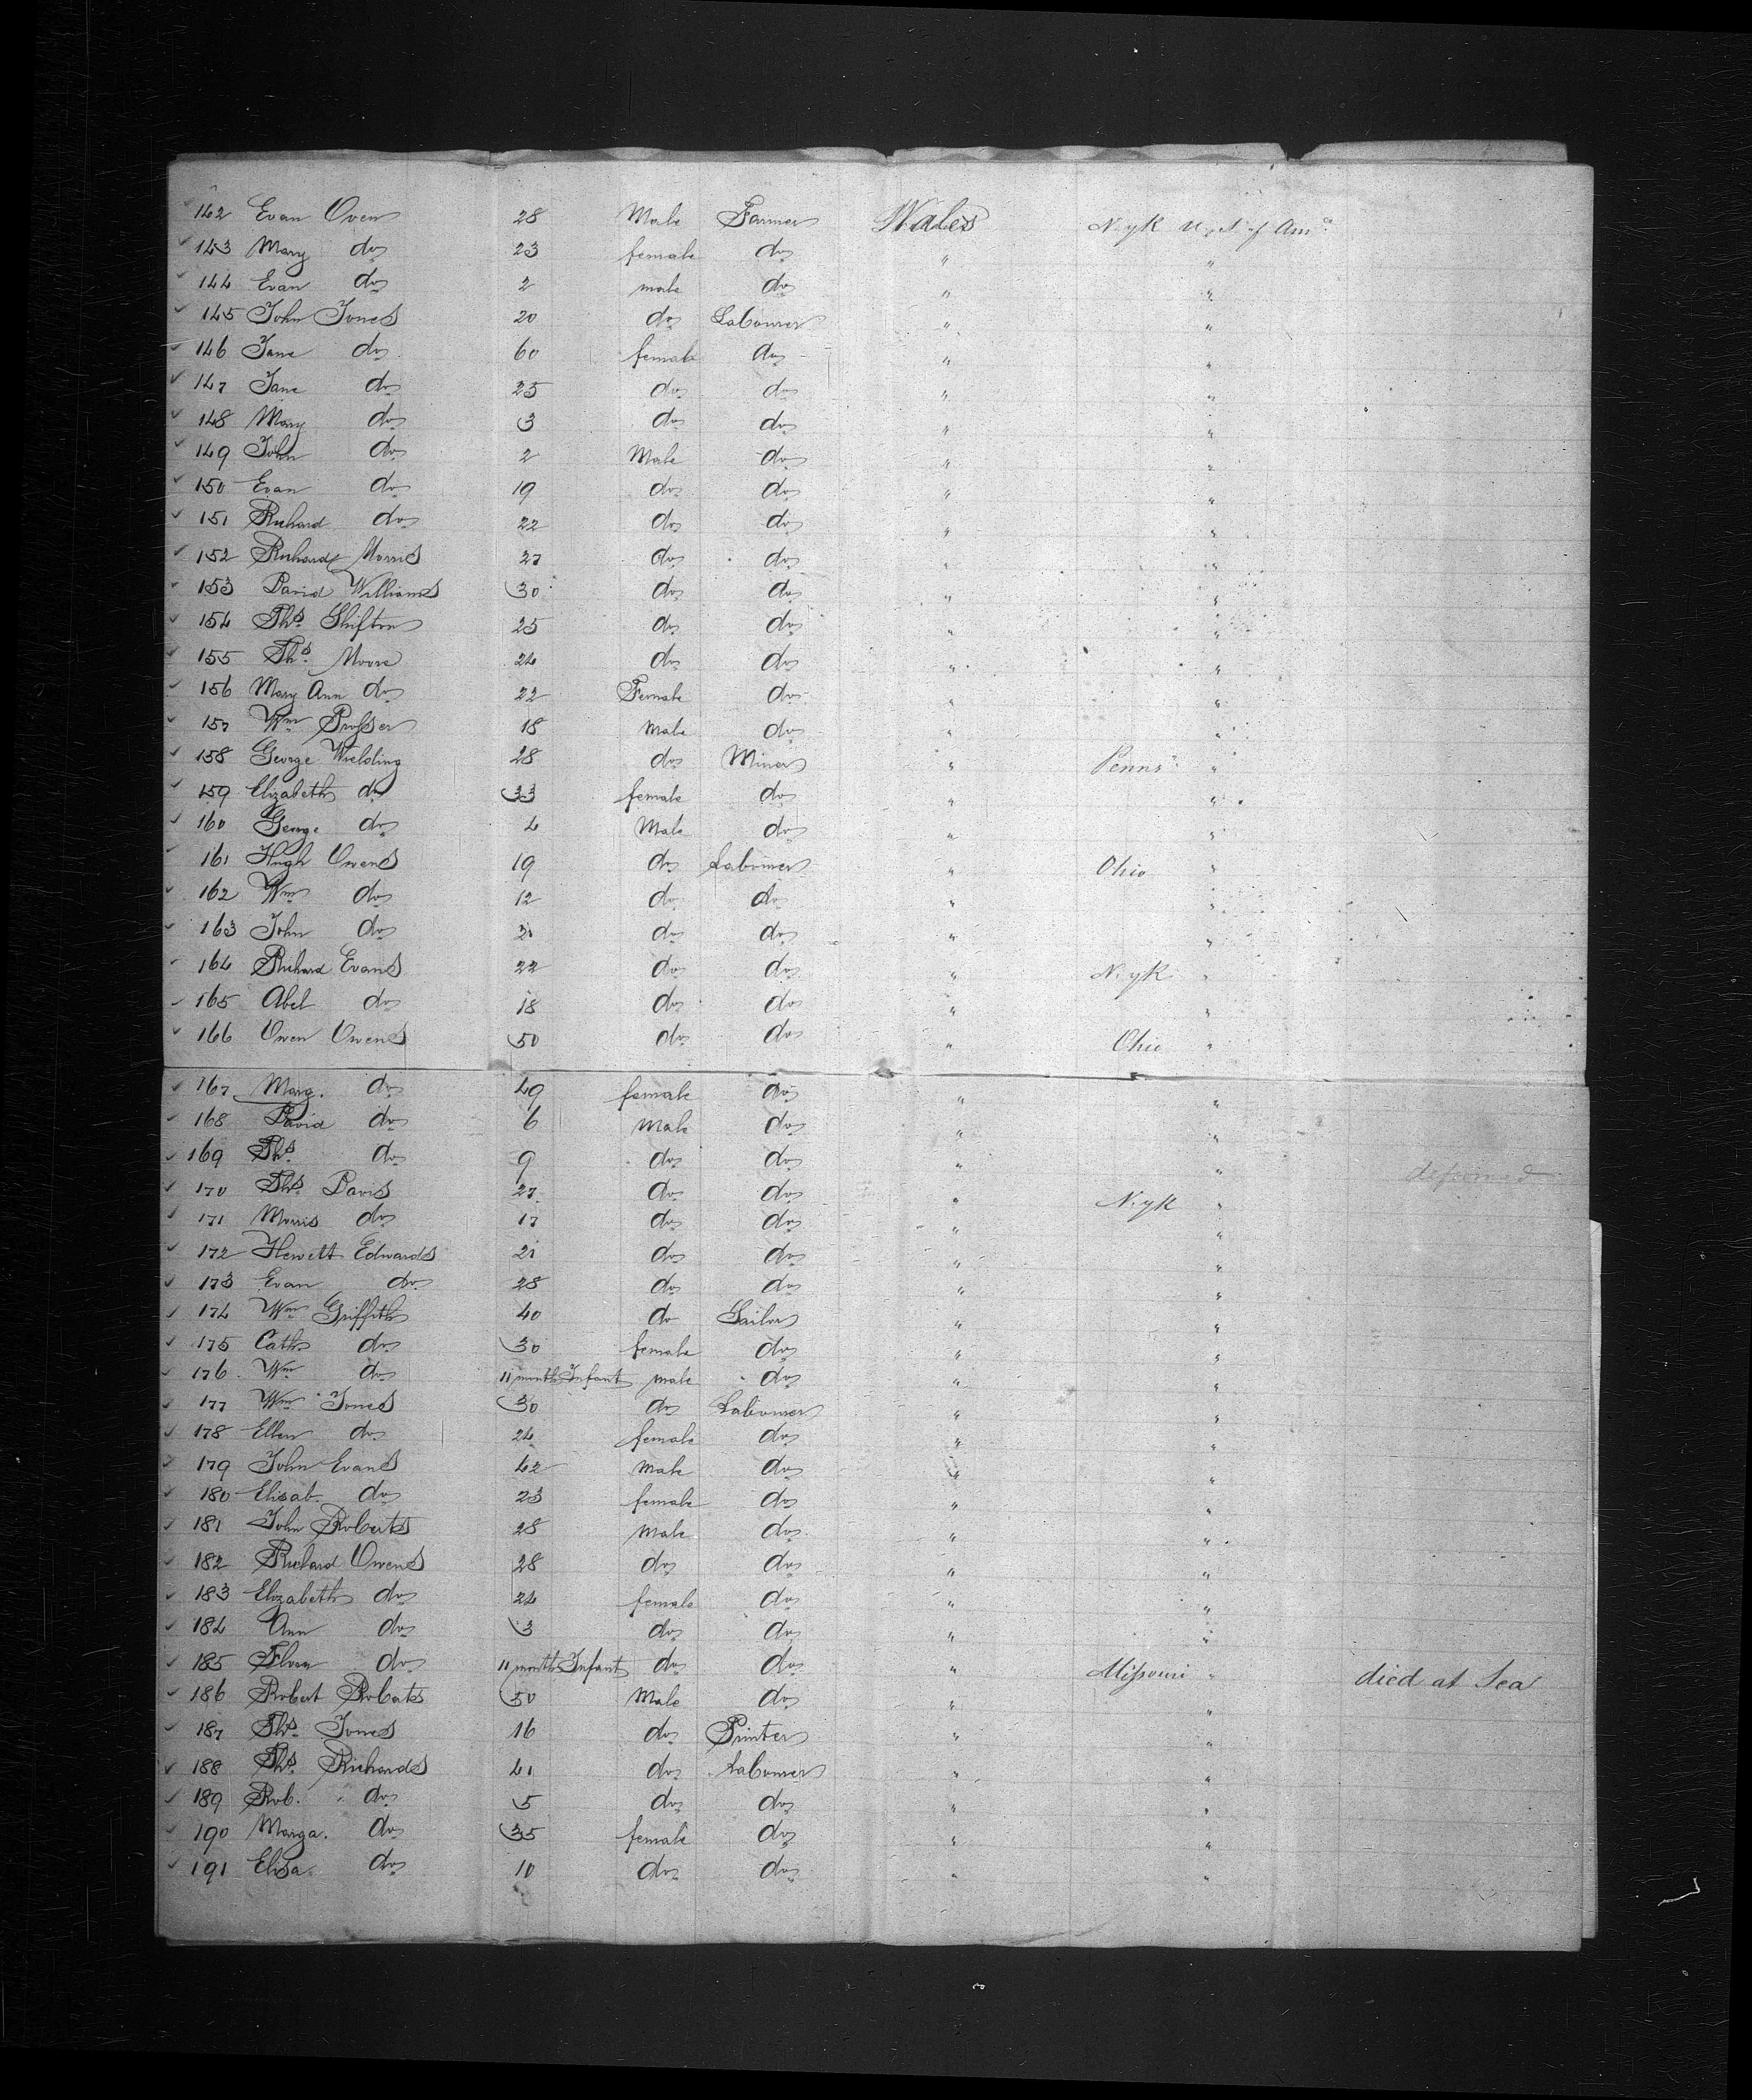 142 Evan Owen 28 Male Farmer Wales N.yk U. S. of Ama
143 Mary do 23 female do " "
144 Evan do 2 male do " "
145 John Jones 20 do Labourer " "
146 Jane do 60 female do " "
147 Jane do 25 do do " "
148 Mary do 3 do do " "
149 John do 2 Male do " "
150 Evan do 19 do do " "
151 Richard do 22 do do " "
152 Richard Morris 27 do do " "
153 David Williams 30 do do " "
154 Thos Shifton 25 do do " "
155 Thos Moore 24 do do " "
156 Mary Ann do 22 Female do " "
157 Wm Prosser 18 Male do " "
158 George Wielding 28 do Miner " Penns "
159 Elizabeth do 33 female do " "
160 George do 4 Male do " "
161 Hugh Owens 19 do Labourer " Ohio "
162 Wm do 12 do do " "
163 John do do do " "
164 Richard Evans 22 do do " N.yk "
165 Abel do 18 do do " "
166 Owen Owens 50 do do " Ohio "
167 Marg. do 49 female do " "
168 David do 6 Male do " "
169 Thos do 9 do do " " deformed
170 Thos Davis 27 do do " N.yk "
171 Morris do 17 do do " "
172 Hewett Edwards 21 do do " "
173 Evan do 28 do do " "
174 Wm Griffith 40 do Sailor " "
175 Cath do 30 female do " "
176 Wm do 11 month Infant male do " "
177 Wm Jones 30 do Labourer " "
178 Ellen do 24 female do " "
179 John Evans 42 Male do " "
180 Elisab. do 23 female do " "
181 John Roberts 28 Male do " "
182 Richard Owens 28 do do " "
183 Elizabeth do 24 female do " "
184 Ann do 3 do do " "
185 do 11 month Infant do do " Missouri " died at Sea
186 Robert Roberts 50 Male do " "
187 Thos Jones 16 do Printer " "
188 Thos Richards 41 do Labourer " "
189 Rob. do 5 do do " "
190 Marga. do 35 female do " "
191 Elisa. do 10 do do " "